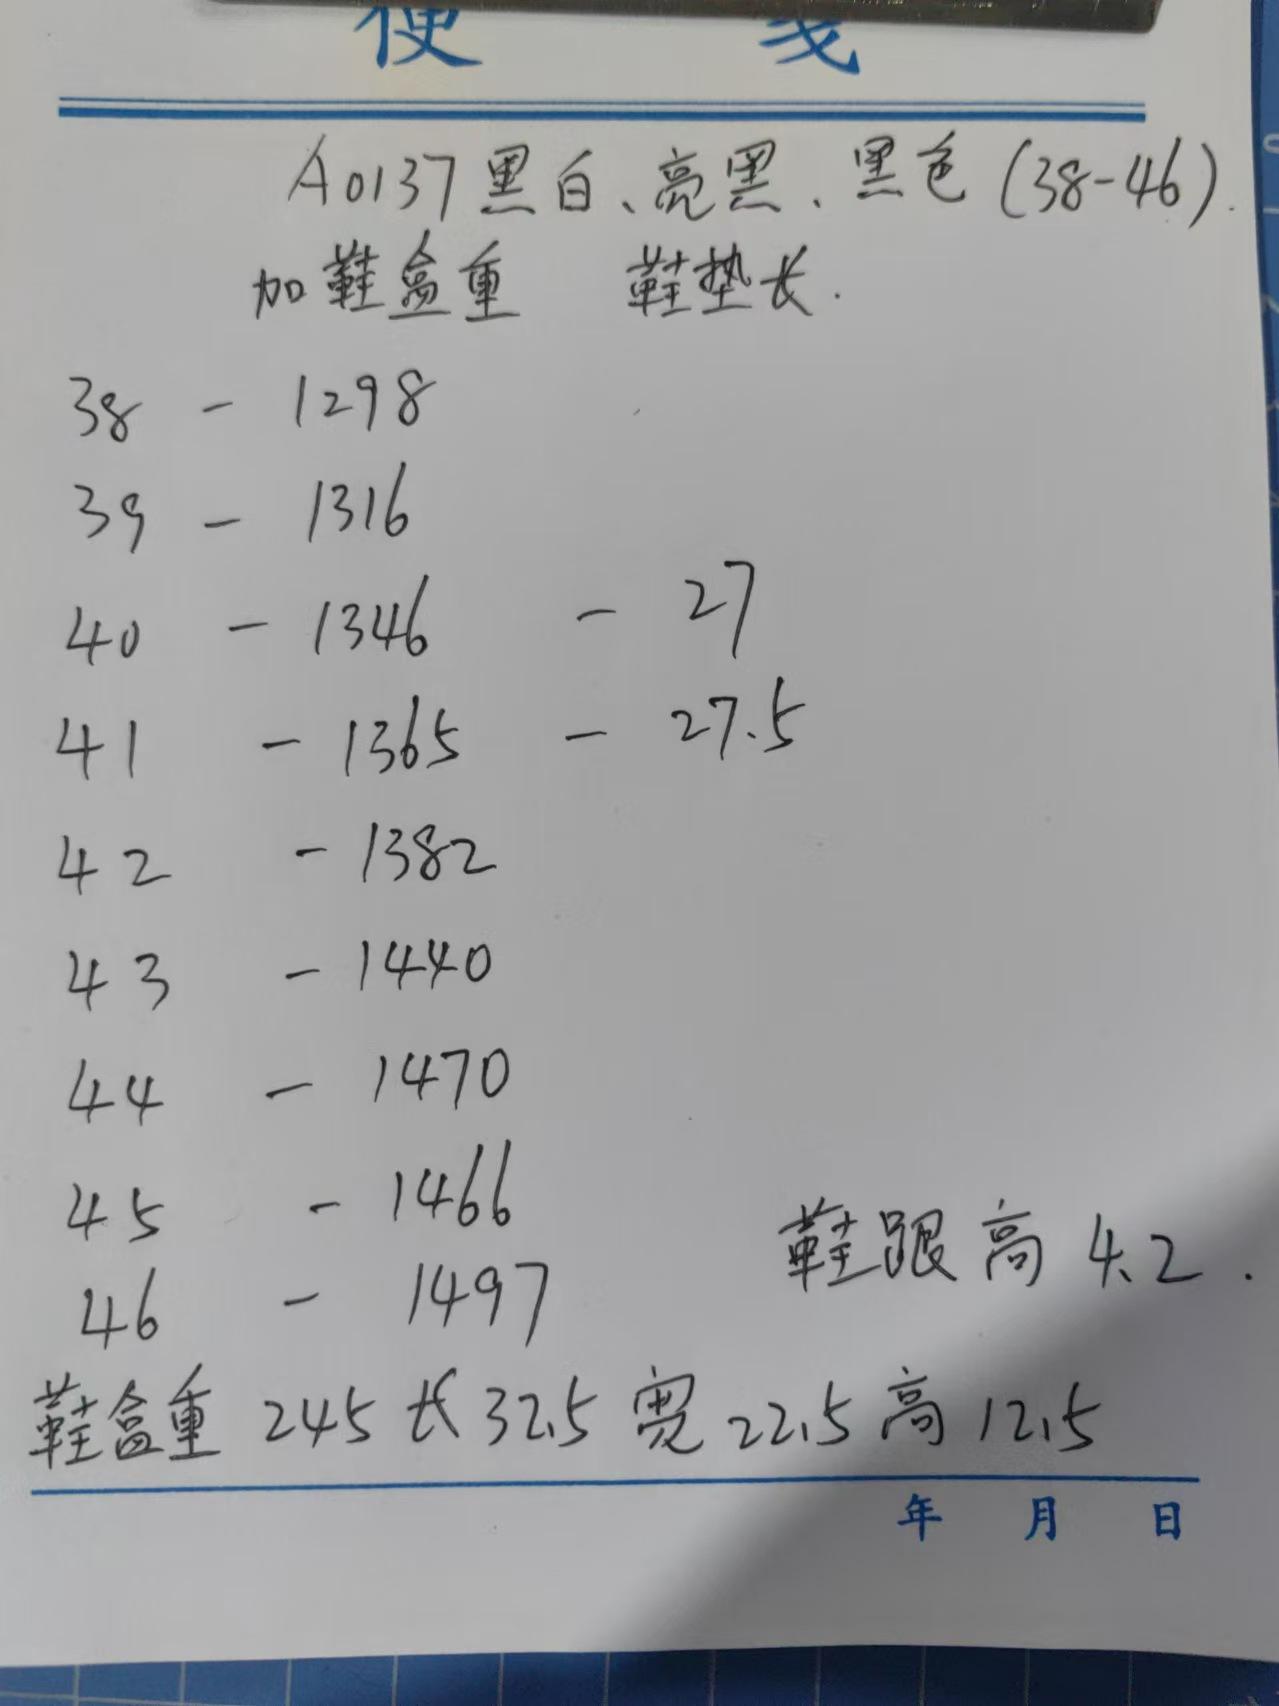 便 笺
A0137黑白、亮黑、黑色(38-46).
加鞋盒重 鞋垫长.
38 - 1298
39 - 1316
40 - 1346 - 27
41 - 1365 - 27.5
42 - 1382
43 - 1440
44 - 1470
45 - 1466
46 - 1497
鞋跟高 4.2.
鞋盒重 245 长 32.5 宽 22.5 高 12.5
年 月 日